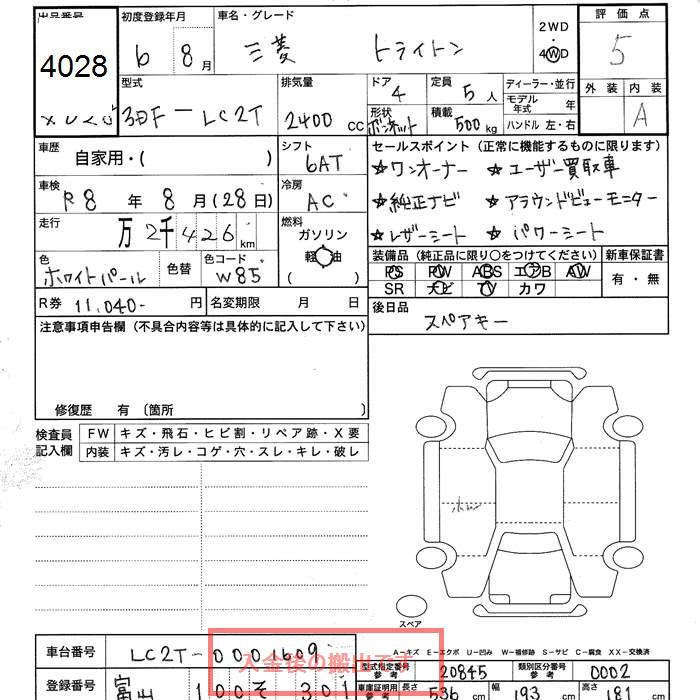 出品番号 初度登録年月 車名・グレード 2WD 評価点
4028 6 8月 三菱 トライトン 4WD 5
型式 排気量 ドア 4 定員 5人 ディーラー・並行 外装 内装
3DF－LC2T 2400cc 形状 ボンネット 積載 500kg モデル年式 年 A
ハンドル 左・右
車歴 自家用・( ) シフト 6AT セールスポイント (正常に機能するものに限ります)
☆ワンオーナー ☆ユーザー買取車
車検 R8年 8月(28日) 冷房 AC ☆純正ナビ ☆アラウンドビューモニター
走行 万2千426km 燃料 ガソリン 軽油 ( ) ☆レザーシート ☆パワーシート
色 ホワイトパール 色替 色コード W85 装備品 (純正品に限り○をつけてください) 新車保証書
PS PW ABS エアB AW 有・無
SR ナビ TV カワ
R券 11,040-円 名変期限 月 日 後日品
スペアキー
注意事項申告欄 (不具合内容等は具体的に記入して下さい)
修復歴 有 〔箇所 〕
検査員 FW キズ・飛石・ヒビ割・リペア跡・X要
記入欄 内装 キズ・汚レ・コゲ・穴・スレ・キレ・破レ
スペア
A－キズ E－エクボ U－凹み W－補修跡 S－サビ C－腐食 XX－交換済
車台番号 LC2T-0001609 型式指定番号 参考 20845 類別区分番号 参考 0002
入金後の搬出です
登録番号 富山 100そ301 車庫証明用 参考 長さ 536cm 幅 193cm 高さ 181cm